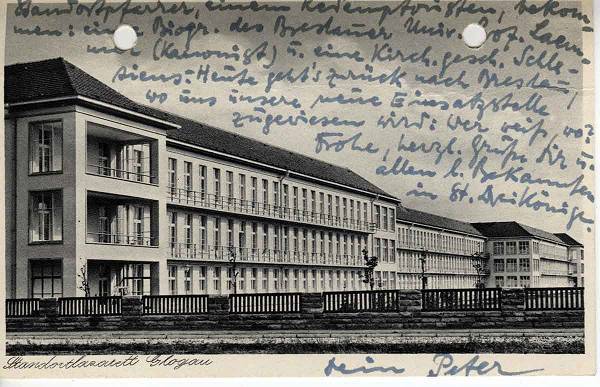 Standortpfarrer, einem Redemptoristen, bekom-
men: eine Biogr. des Breslauer Univ. Prof. Laem-
mer (Kanonist) u. eine Kirch. gesch. Schle-
siens. Heute geht's zurück nach Breslau,
wo uns unsere neue Einsatzstelle
zugewiesen wird: wer weiß, wo?
Frohe, herzl. Grüße Dir u.
allen l. Bekannten
in St. Dreikönige.
Standortlazarett Glogau
Dein Peter